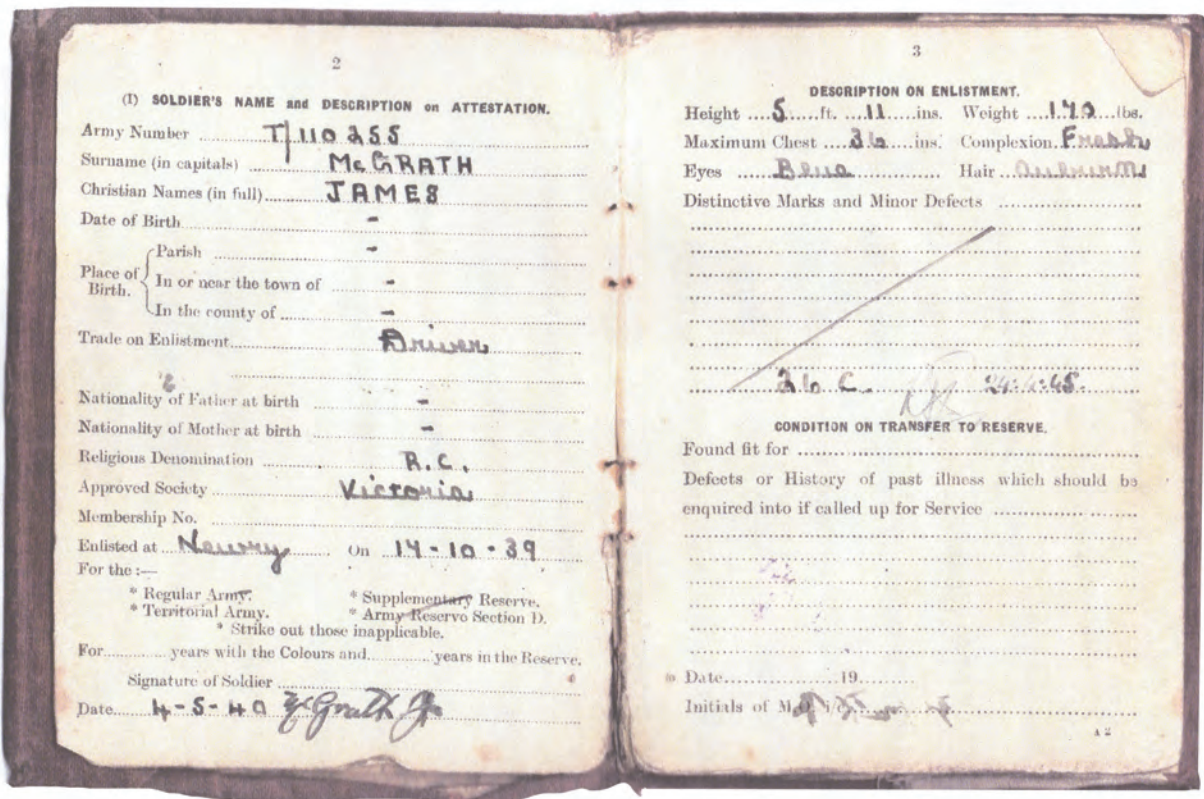 2
(I) SOLDIER'S NAME and DESCRIPTION on ATTESTATION.
Army Number T/110255
Surname (in capitals) McGRATH
Christian Names (in full) JAMES
Date of Birth -
Place of Birth.
Parish -
In or near the town of -
In the county of -
Trade on Enlistment Driver
Nationality of Father at birth -
Nationality of Mother at birth -
Religious Denomination R.C.
Approved Society Victoria
Membership No.
Enlisted at Newry On 14-10-39
For the :—
* Regular Army. * Supplementary Reserve.
* Territorial Army. * Army Reserve Section D.
* Strike out those inapplicable.
For ............ years with the Colours and ............ years in the Reserve.
Signature of Soldier
Date 4-5-40 McGrath J
3
DESCRIPTION ON ENLISTMENT.
Height 5 ft. 11 ins. Weight 170 lbs.
Maximum Chest 36 ins. Complexion Fresh
Eyes Blue Hair Auburn
Distinctive Marks and Minor Defects
CONDITION ON TRANSFER TO RESERVE.
Found fit for
Defects or History of past illness which should be
enquired into if called up for Service
Date ............ 19 ........
Initials of M.O. i/c
A 2